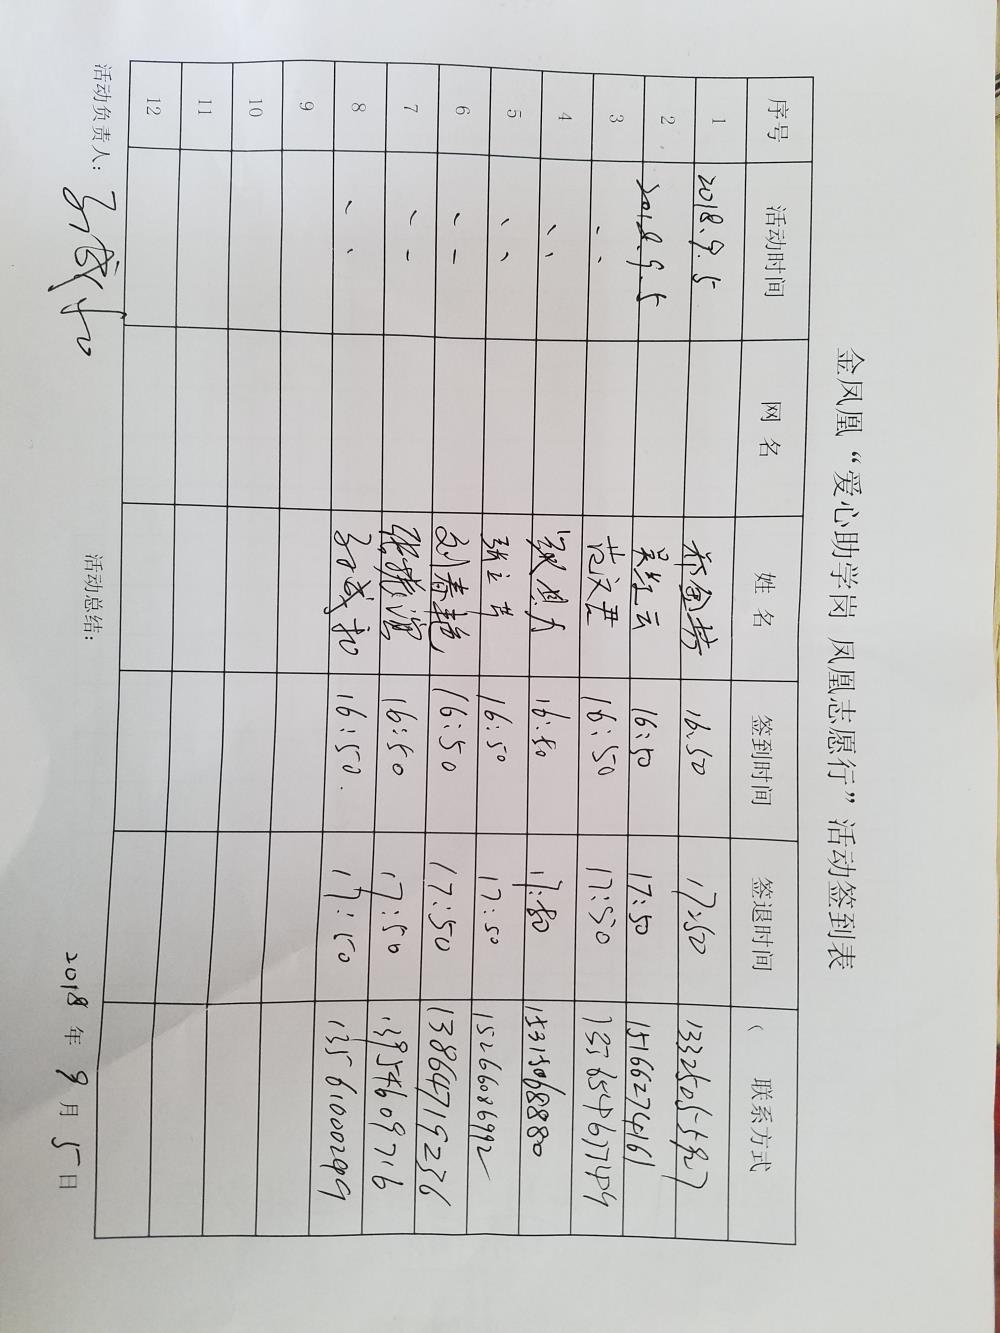 金凤凰“爱心助学岗 凤凰志愿行”活动签到表
序号 活动时间 网 名 姓 名 签到时间 签退时间 联系方式
1 2018.9.5 16:50 17:50
2 2018.9.5 吴红云 16:50 17:50 15166274161
3 、、 范汉君 16:50 17:50
4 、、 16:50 17:50 15315068880
5 、、 16:50 17:50 15266086992
6 、、 刘春艳 16:50 17:50 13864719236
7 、、 16:50 17:50 13954609716
8 、、 16:50 17:50 13561000299
9
10
11
12
活动负责人: 活动总结: 2018 年 9 月 5 日